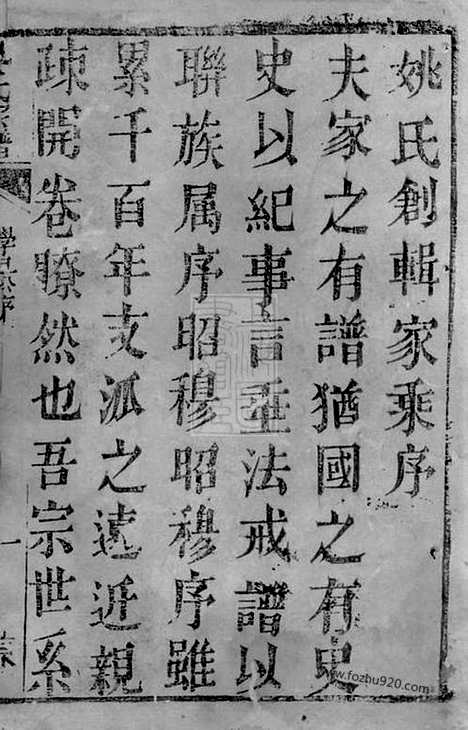 姚氏創輯家乘序
夫家之有譜猶國之有史
史以紀事言垂法戒譜以
聯族属序昭穆昭穆序雖
累千百年支派之遠近親
疎開卷瞭然也吾宗世系
一
www.fozhu920.com